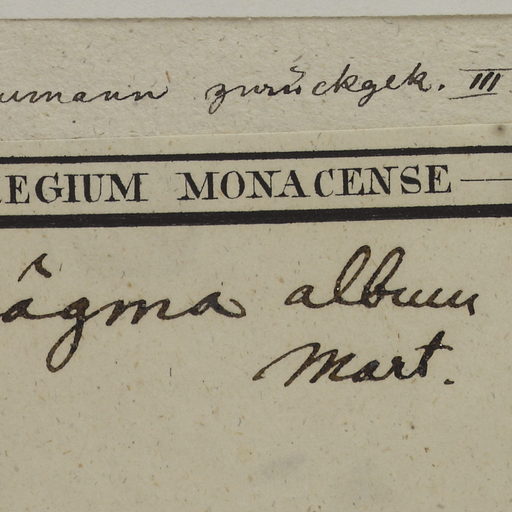 umann zurückgek. III
REGIUM MONACENSE
âgma album
Mart.